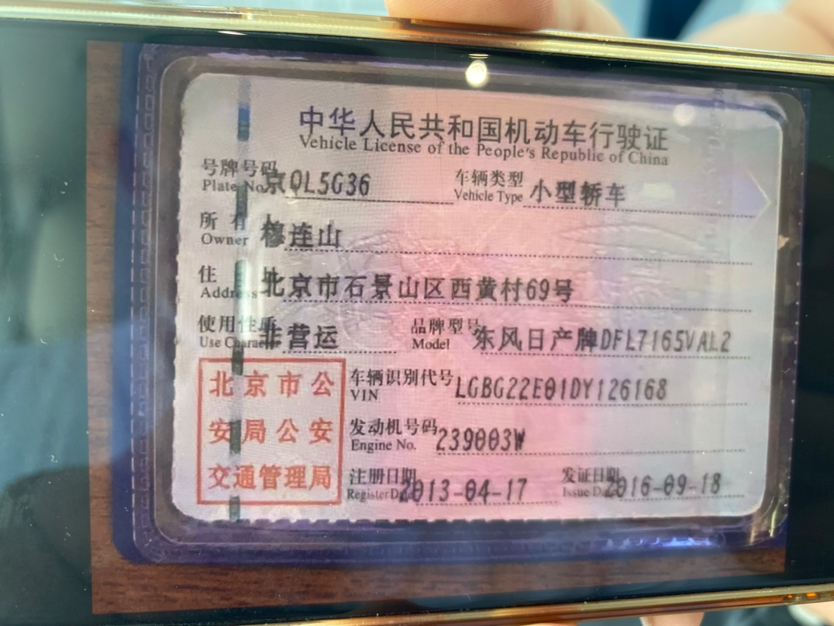 中华人民共和国机动车行驶证
Vehicle License of the People's Republic of China
号牌号码 京QL5G36 车辆类型 小型轿车
Plate No. Vehicle Type
所有人 穆连山
Owner
住址 北京市石景山区西黄村69号
Address
使用性质 非营运 品牌型号 东风日产牌DFL7165VAL2
Use Character Model
北京市公
安局公安
交通管理局
车辆识别代号 LGBG22E01DY126168
VIN
发动机号码 239003W
Engine No.
注册日期 2013-04-17 发证日期 2016-09-18
Register Date Issue Date